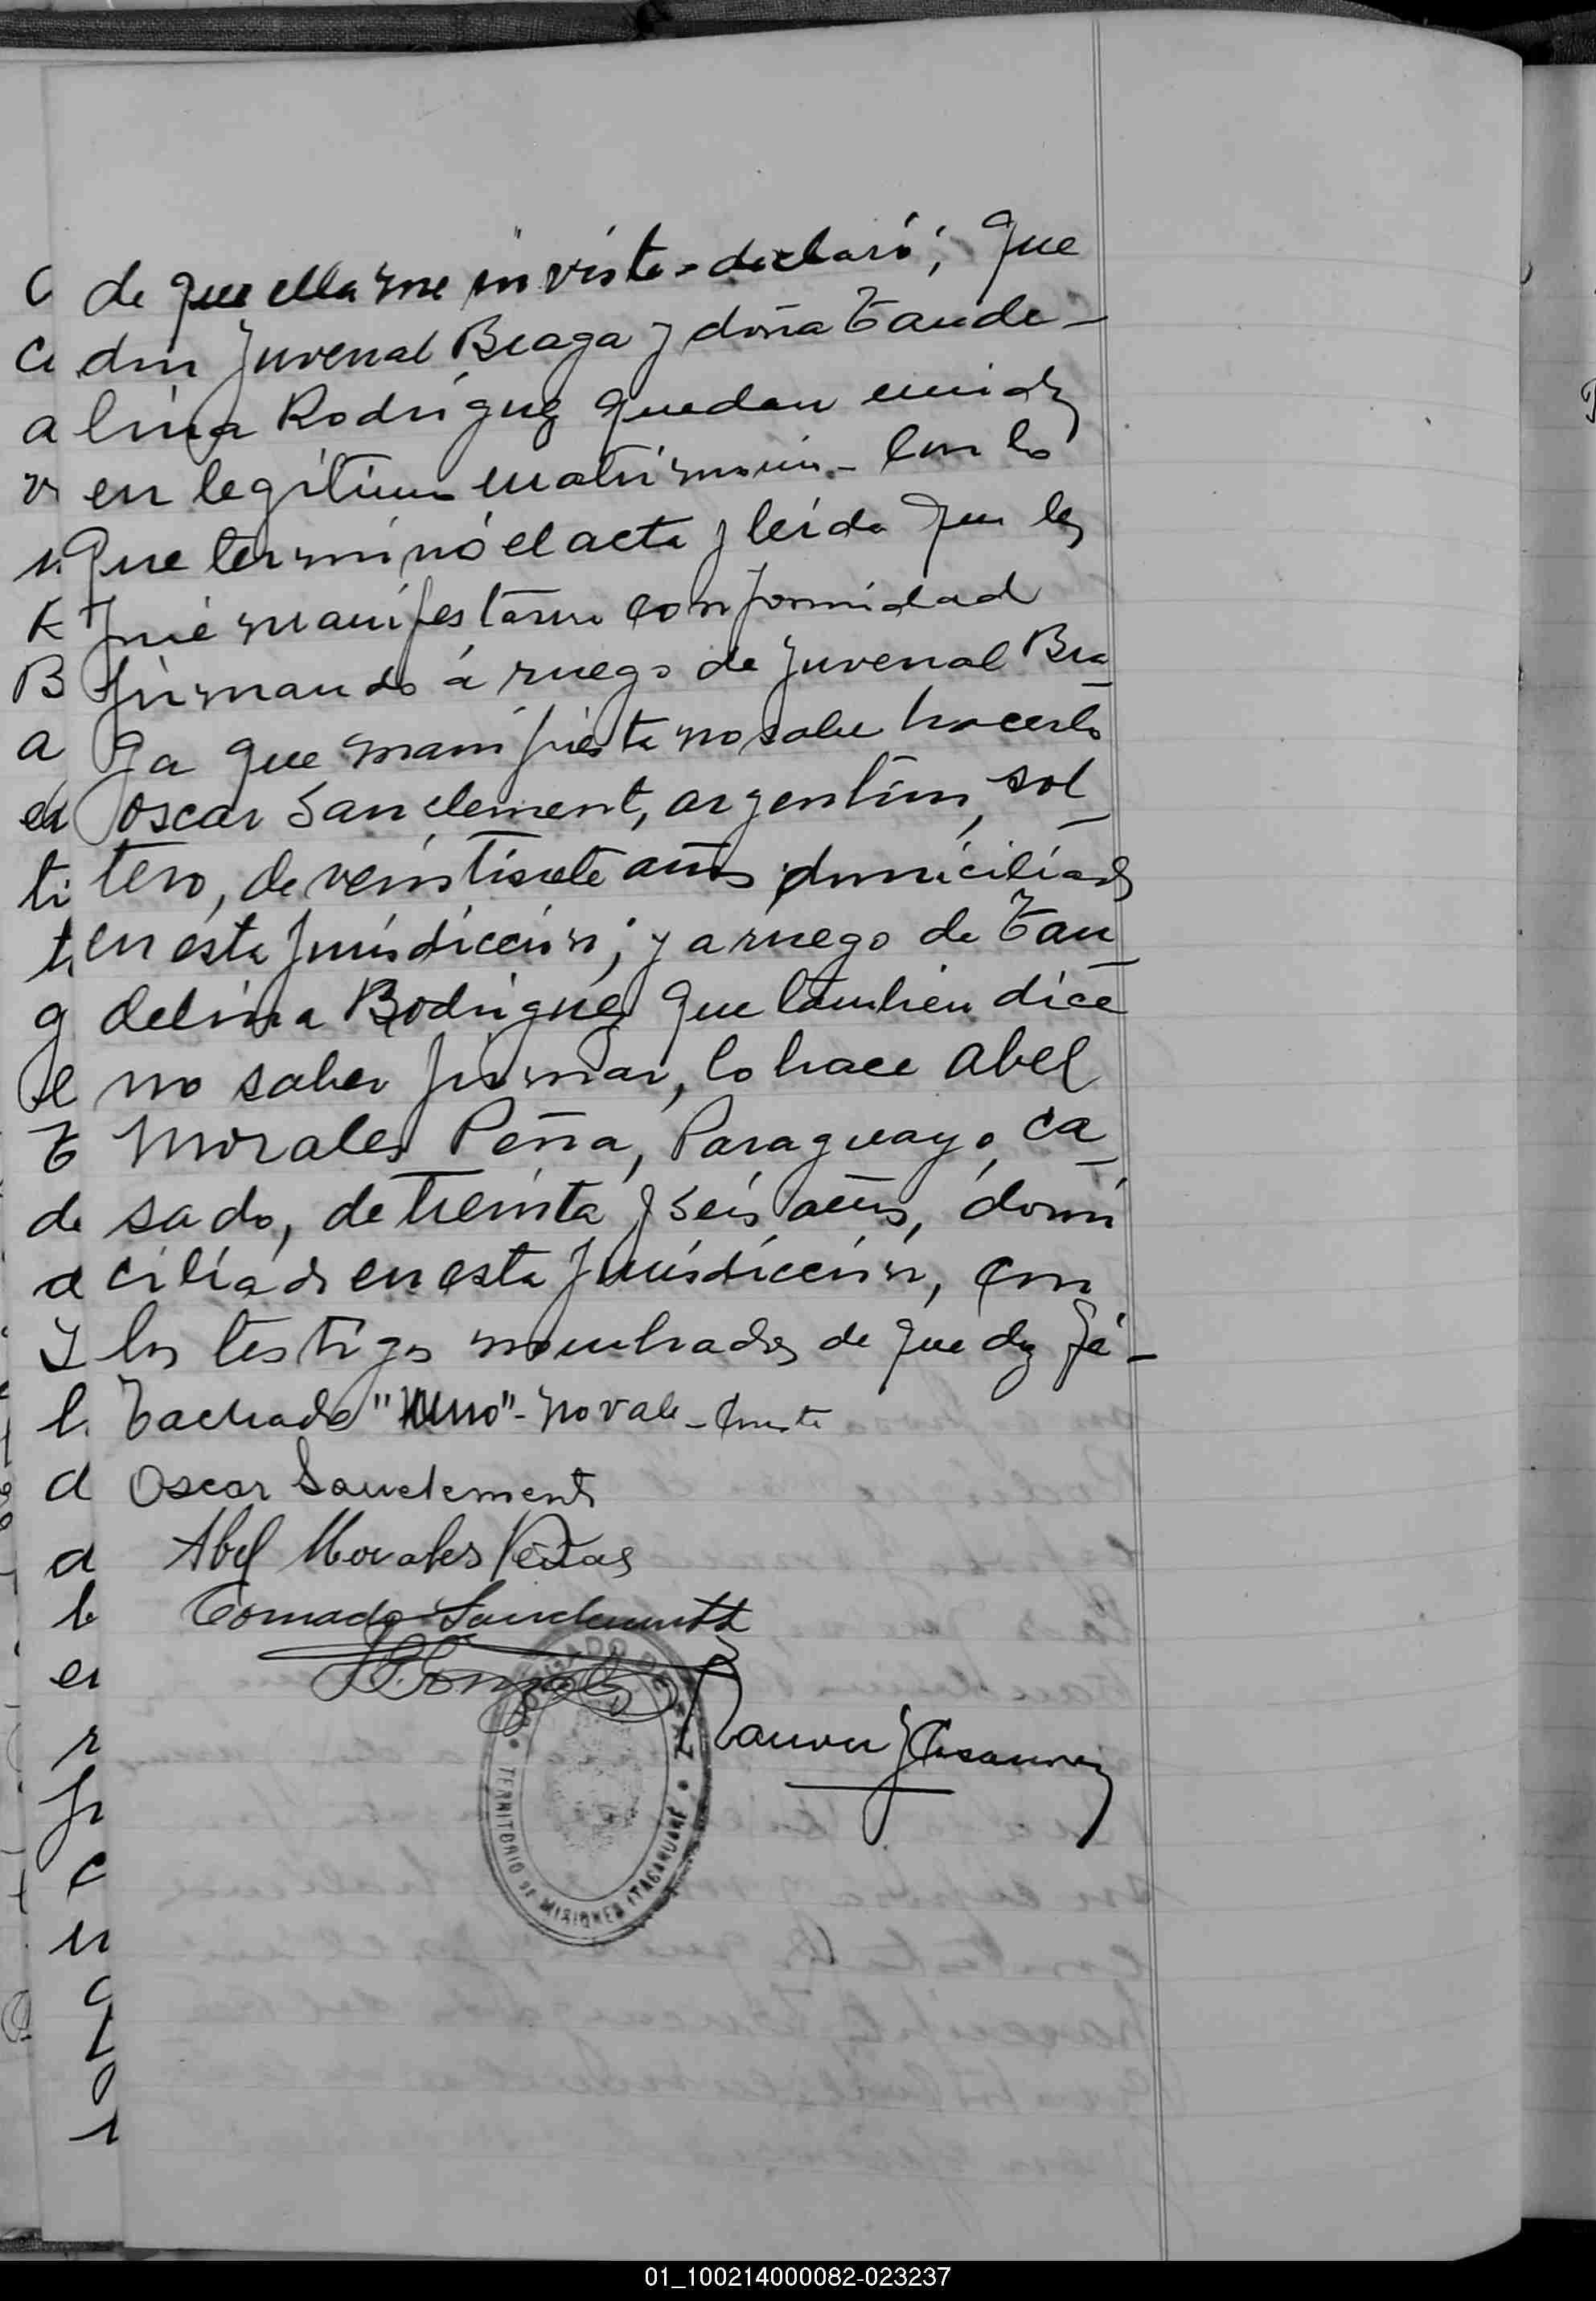 de que ella me inviste - declaró; que
don Juvenal Braga y doña Taude-
lina Rodriguez quedan unidos
en legitimo matrimonio - Con lo
que terminó el acta y leida que les
fué manifestaron conformidad
firmando á ruego de Juvenal Bra-
ga que manifiesta no saber hacerlo
Oscar Sanclement, argentino, sol-
tero, de veintisiete años domiciliado
en esta jurisdiccion; y a ruego de Tau-
delina Rodriguez que tambien dice
no saber firmar, lo hace Abel
Morales Peña, Paraguayo, ca-
sado, de treinta y seis años, domi
ciliado en esta jurisdiccion, con
los testigos nombrados de que doy fé -
Tachado - no vale - Conste
Oscar Sanclement
Abel Morales Peñas
Conrado Sanclement
JUZGADO DE PAZ
TERRITORIO DE MISIONES ITACARUARÉ
Ramon
01_100214000082-023237